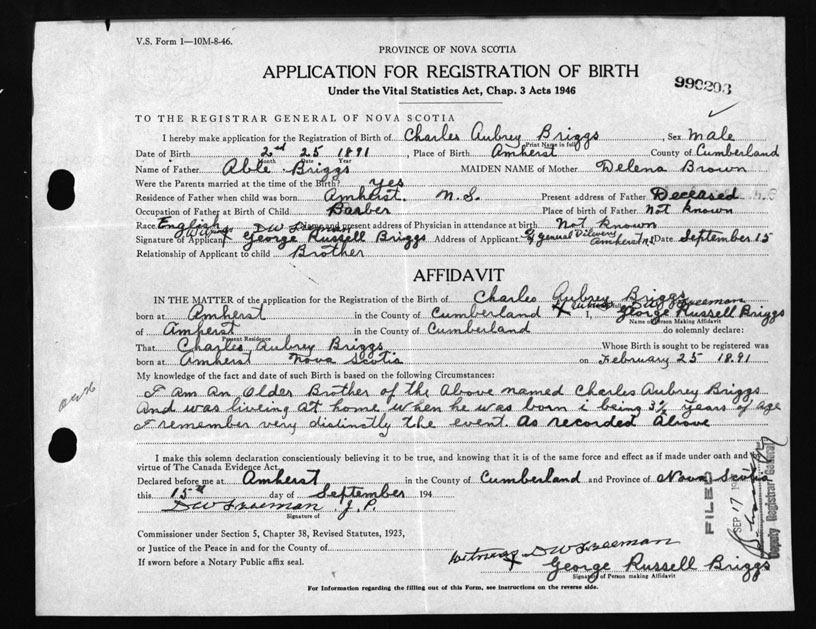 V.S. Form 1—10M-8-46.
PROVINCE OF NOVA SCOTIA
APPLICATION FOR REGISTRATION OF BIRTH
990203
Under the Vital Statistics Act, Chap. 3 Acts 1946
TO THE REGISTRAR GENERAL OF NOVA SCOTIA
I hereby make application for the Registration of Birth of Charles Aubrey Briggs, Sex Male
Print Name in full
Date of Birth 2nd 25 1891, Place of Birth Amherst County of Cumberland
Month Day Year
Name of Father Able Briggs MAIDEN NAME of Mother Delena Brown
Were the Parents married at the time of the Birth? yes
Residence of Father when child was born Amherst. N.S. Present address of Father Deceased
Occupation of Father at Birth of Child Barber Place of birth of Father Not known
Race English Name and present address of Physician in attendance at birth Not known
Witness DW Freeman
Signature of Applicant X George Russell Briggs Address of Applicant general Amherst NS Date September 15
Relationship of Applicant to child Brother
AFFIDAVIT
IN THE MATTER of the application for the Registration of the Birth of Charles Aubrey Briggs
Witness DW Freeman
born at Amherst in the County of Cumberland X I, George Russell Briggs
Name of Person Making Affidavit
of Amherst in the County of Cumberland do solemnly declare:
Present Residence
That Charles Aubrey Briggs Whose Birth is sought to be registered was
born at Amherst Nova Scotia on February 25 1891
My knowledge of the fact and date of such Birth is based on the following Circumstances:
I Am An Older Brother of the Above named Charles Aubrey Briggs
And was liveing At home when he was born i being 3½ years of age
I remember very distinctly the event. As recorded Above
I make this solemn declaration conscientiously believing it to be true, and knowing that it is of the same force and effect as if made under oath and by
virtue of The Canada Evidence Act.
Declared before me at Amherst in the County of Cumberland and Province of Nova Scotia
this 15th day of September 194
DW Freeman J.P.
Signature of
FILED
SEP 17
Deputy Registrar General
Commissioner under Section 5, Chapter 38, Revised Statutes, 1923,
or Justice of the Peace in and for the County of
If sworn before a Notary Public affix seal.
Witness DW Freeman
X George Russell Briggs
Signature of Person making Affidavit
For Information regarding the filling out of this Form, see instructions on the reverse side.